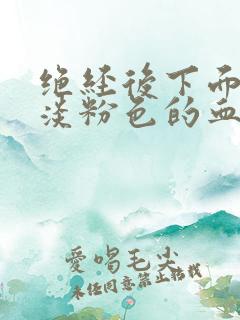 绝经後下面
淡粉色的血
爱唱毛尖
未经同意禁止转载